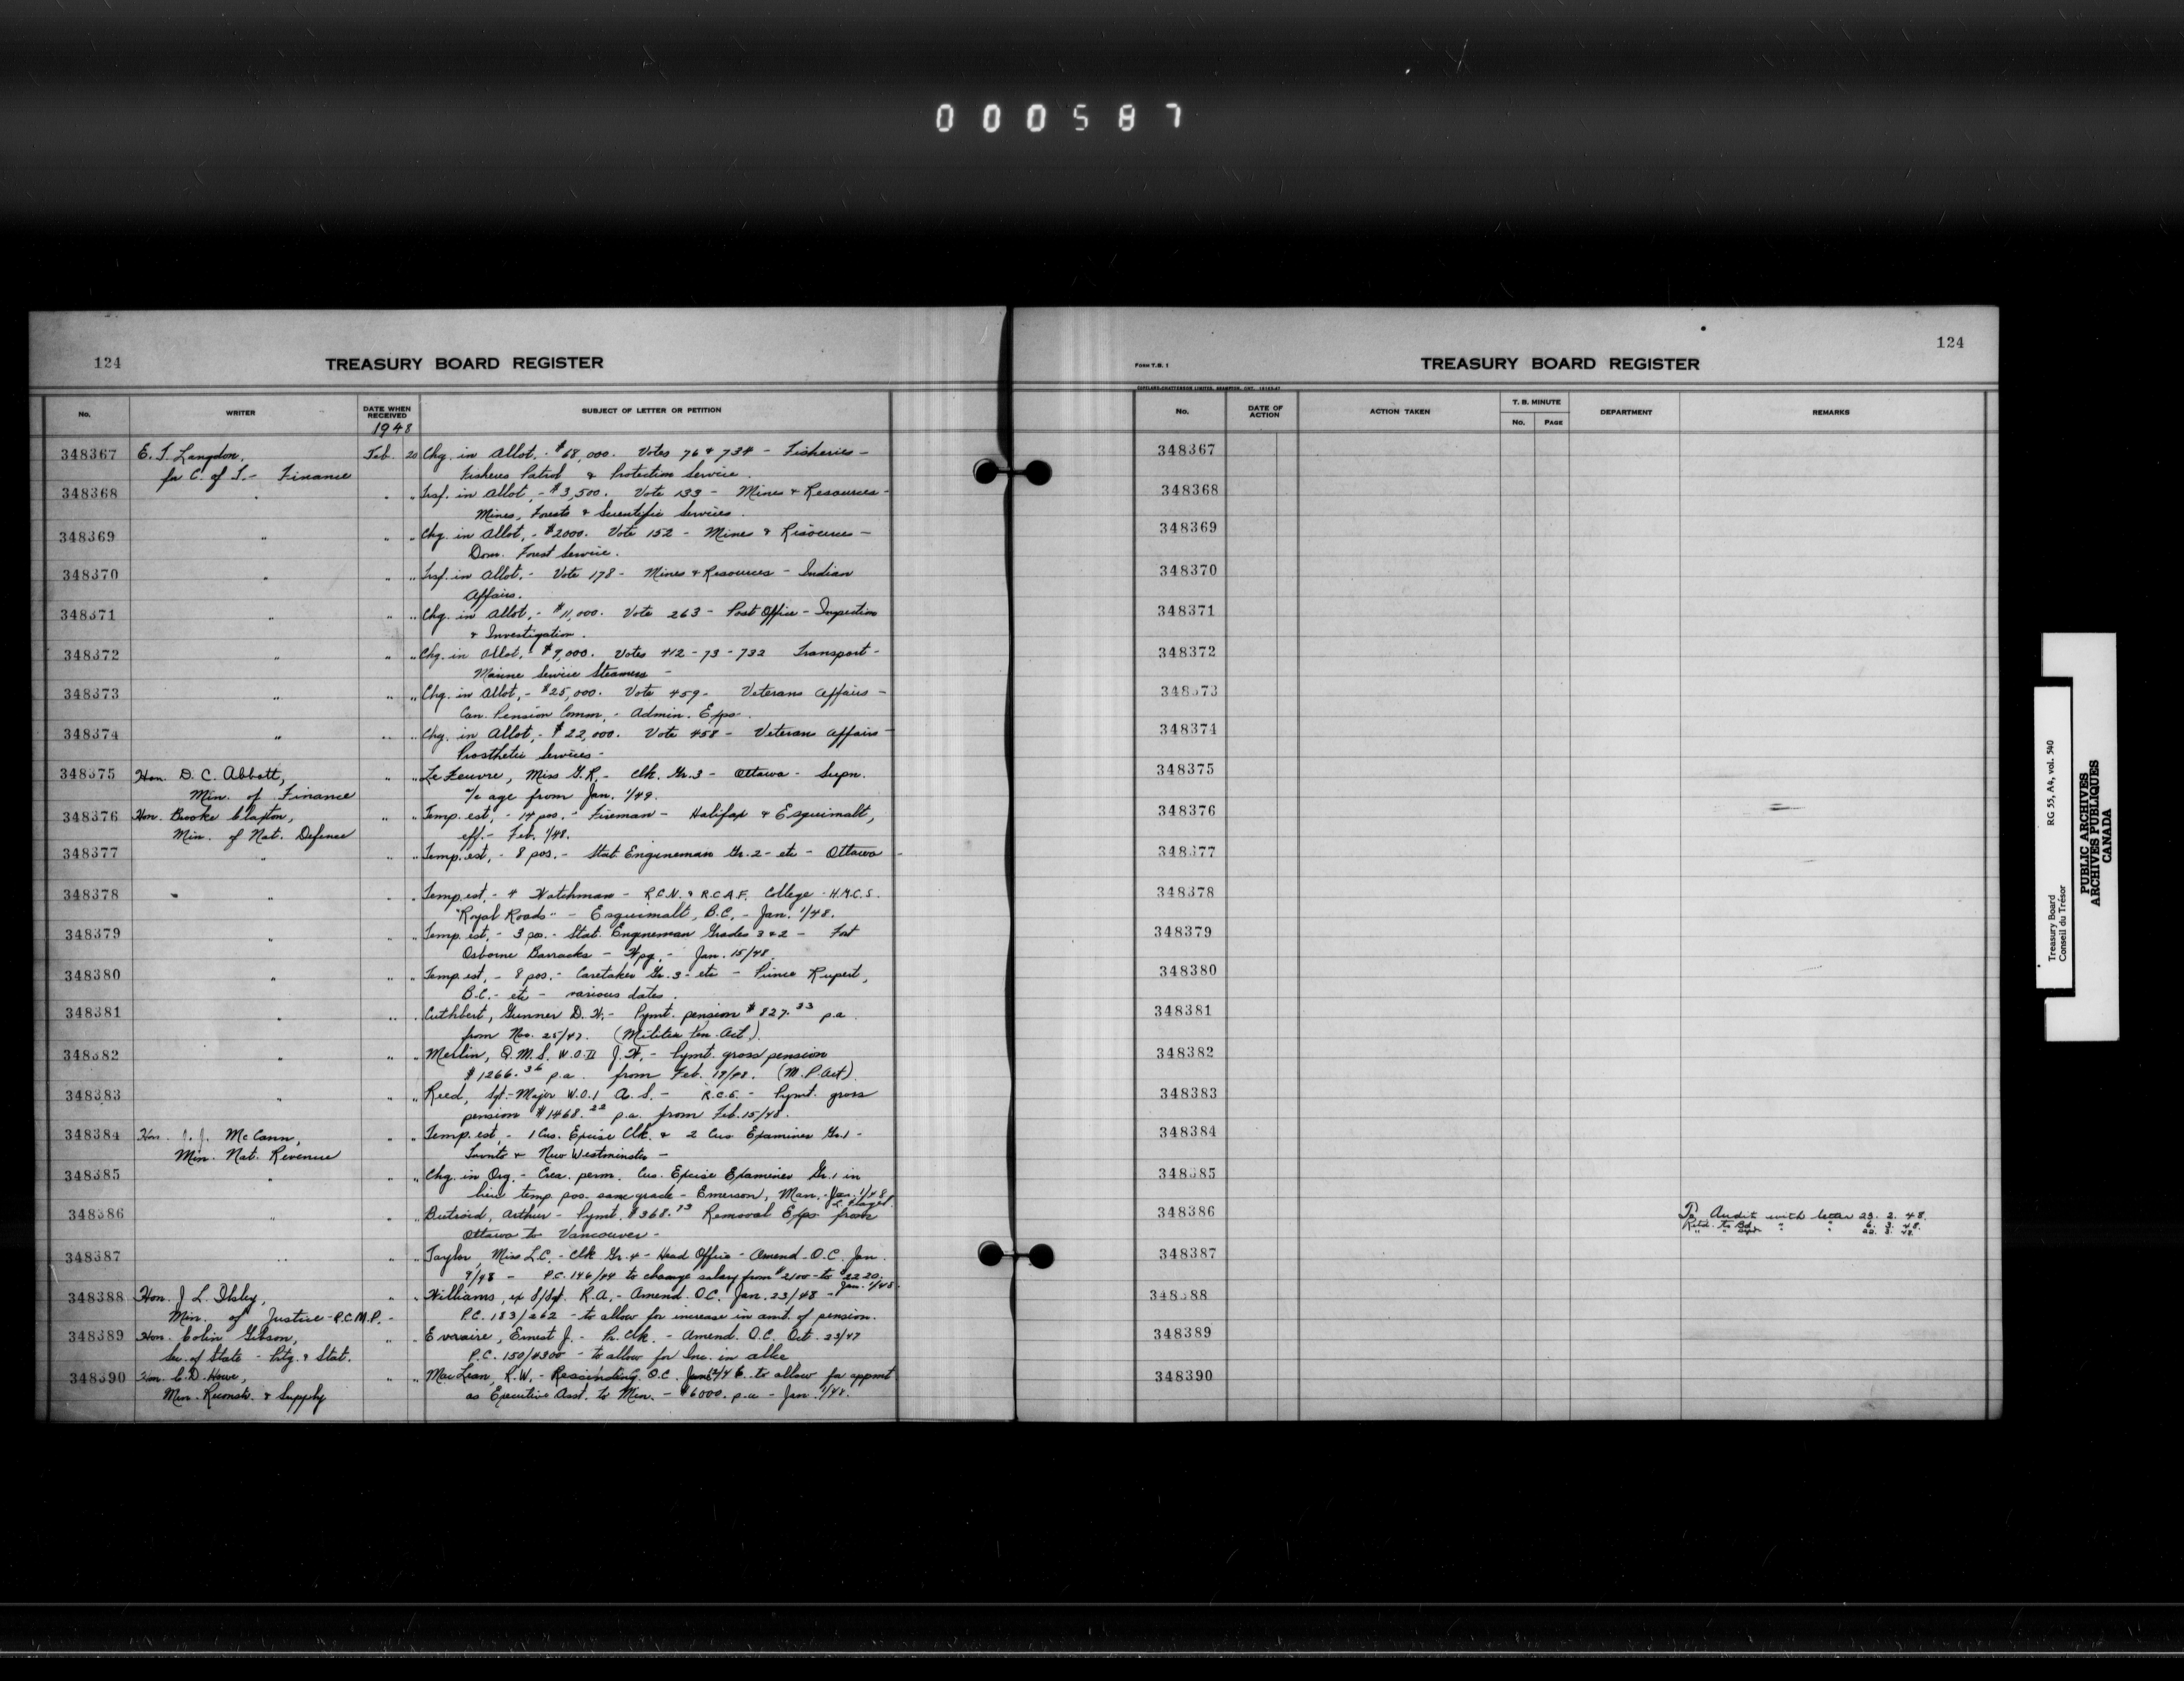 000587
124
TREASURY BOARD REGISTER
No.
WRITER
DATE WHEN RECEIVED
1948
SUBJECT OF LETTER OR PETITION
348367 E. T. Langdon, Feb. 20 Chg. in Allot. - $68,000. Votes 76 & 734 - Fisheries -
for C. of T. - Finance Fisheries Patrol & Protection Service.
348368 " " " Trsf. in Allot, - $3,500. Vote 133 - Mines & Resources -
Mines, Forests & Scientific Services.
348369 " " " Chg. in Allot, - $2000. Vote 152 - Mines & Resources -
Dom. Forest Service.
348370 " " " Trsf. in Allot. - Vote 178 - Mines & Resources - Indian
Affairs.
348371 " " " Chg. in Allot, - $11,000. Vote 263 - Post Office - Inspection
& Investigation.
348372 " " " Chg. in Allot. - $9,000. Votes 412-73-732 Transport -
Marine Service Steamers -
348373 " " " Chg. in Allot, - $25,000. Vote 459 - Veterans Affairs -
Can. Pension Comm. - Admin. Exps.
348374 " " " Chg. in Allot, - $22,000. Vote 458 - Veterans Affairs -
Prosthetic Services -
348375 Hon. D. C. Abbott, " " Le Feuvre, Miss G.R. - Clk. Gr. 3 - Ottawa - Supn.
Min. of Finance a/c age from Jan. 1/49.
348376 Hon. Brooke Claxton, " " Temp. est, - 14 pos. - Fireman - Halifax & Esquimalt,
Min. of Nat. Defence eff. - Feb. 1/48.
348377 " " " Temp. est, - 8 pos. - Stat. Engineman Gr. 2 - etc - Ottawa -
348378 " " " Temp. est, - 4 Watchman - R.C.N. & R.C.A.F. College - H.M.C.S.
"Royal Roads" - Esquimalt, B.C. - Jan. 1/48.
348379 " " " Temp. est, - 3 pos. - Stat. Engineman Grades 3 & 2 - Fort
Osborne Barracks - Wpg. - Jan. 15/48.
348380 " " " Temp. est, - 8 pos. - Caretaker Gr. 3 - etc - Prince Rupert,
B.C. - etc - various dates.
348381 " " " Cuthbert, Gunner D. H. - Pymt. pension $827.33 p.a.
from Nov. 25/47. (Militia Pen. Act).
348382 " " " Merlin, Q.M.S. W.O.II J. W. - Pymt. gross pension
$1266.36 p.a. from Feb. 19/48. (M.P. Act).
348383 " " " Reed, Sgt.-Major W.O.1 A. S. - R.C.E. - Pymt. gross
pension $1468.22 p.a. from Feb. 15/48.
348384 Hon. J. J. McCann, " " Temp. est, - 1 Cus. Excise Clk. & 2 Cus Examiner Gr. 1 -
Min. Nat. Revenue Toronto & New Westminster -
348385 " " " Chg. in Org. - Crea. perm. Cus. Excise Examiner Gr. 1 in
lieu temp. pos. same grade - Emerson, Man. - Jan. 1/48.
348386 " " " Butroid, Arthur - Pymt. $368.93 Removal Exps from
Ottawa to Vancouver -
348387 " " " Taylor, Miss L.C. - Clk Gr. 4 - Head Office - Amend. O.C. Jan.
9/48 - P.C. 146/94 to change salary from $2100 - to $2220. Jan. 1/48.
348388 Hon. J. L. Ilsley, " " Williams, ex S/Sgt. R.A. - Amend. O.C. Jan. 23/48 -
Min. of Justice - R.C.M.P. - P.C. 183/262 - to allow for increase in amt. of pension.
348389 Hon. Colin Gibson, " " Evraire, Ernest J. - Pr. Clk. - Amend. O.C. Oct. 23/47
Sec. of State - Prtg. & Stat. P.C. 150/4300 - to allow for Inc. in allce
348390 Hon. C. D. Howe, " " MacLean, R.W. - Rescinding O.C. to allow for appmt
Min. Reconstr. & Supply as Executive Asst. to Min. - $6000. p.a - Jan. 1/48.
FORM T.B. 1
TREASURY BOARD REGISTER
124
No.
DATE OF ACTION
ACTION TAKEN
T. B. MINUTE
No.
PAGE
DEPARTMENT
REMARKS
348367
348368
348369
348370
348371
348372
348373
348374
348375
348376
348377
348378
348379
348380
348381
348382
348383
348384
348385
348386 To Audit with letter 23. 2. 48.
Retd. to Bd. " " 6. 3. 48.
" " Dept 22. 3. 48.
348387
348388
348389
348390
Treasury Board RG 55, A4, vol. 540
Conseil du Trésor
PUBLIC ARCHIVES
ARCHIVES PUBLIQUES
CANADA